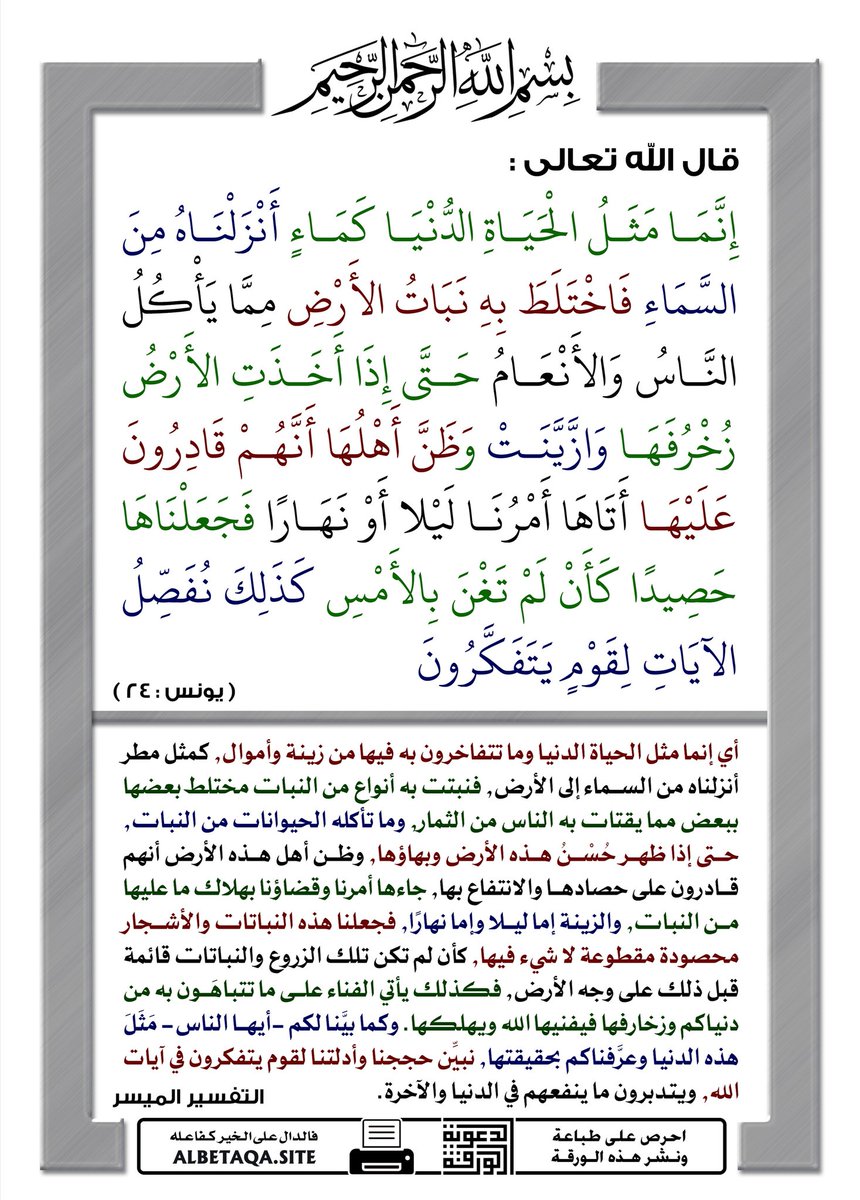 بِسْمِ اللَّهِ الرَّحْمَنِ الرَّحِيمِ
قال الله تعالى :
إِنَّمَا مَثَلُ الْحَيَاةِ الدُّنْيَا كَمَاءٍ أَنْزَلْنَاهُ مِنَ
السَّمَاءِ فَاخْتَلَطَ بِهِ نَبَاتُ الأَرْضِ مِمَّا يَأْكُلُ
النَّاسُ وَالأَنْعَامُ حَتَّى إِذَا أَخَذَتِ الأَرْضُ
زُخْرُفَهَا وَازَّيَّنَتْ وَظَنَّ أَهْلُهَا أَنَّهُمْ قَادِرُونَ
عَلَيْهَا أَتَاهَا أَمْرُنَا لَيْلا أَوْ نَهَارًا فَجَعَلْنَاهَا
حَصِيدًا كَأَنْ لَمْ تَغْنَ بِالأَمْسِ كَذَلِكَ نُفَصِّلُ
الآيَاتِ لِقَوْمٍ يَتَفَكَّرُونَ
( يونس : ٢٤ )
أي إنما مثل الحياة الدنيا وما تتفاخرون به فيها من زينة وأموال, كمثل مطر
أنزلناه من السماء إلى الأرض, فنبتت به أنواع من النبات مختلط بعضها
ببعض مما يقتات به الناس من الثمار, وما تأكله الحيوانات من النبات,
حتى إذا ظهر حُسْنُ هذه الأرض وبهاؤها, وظن أهل هذه الأرض أنهم
قادرون على حصادها والانتفاع بها, جاءها أمرنا وقضاؤنا بهلاك ما عليها
من النبات, والزينة إما ليلا وإما نهارًا, فجعلنا هذه النباتات والأشجار
محصودة مقطوعة لا شيء فيها, كأن لم تكن تلك الزروع والنباتات قائمة
قبل ذلك على وجه الأرض, فكذلك يأتي الفناء على ما تتباهَون به من
دنياكم وزخارفها فيفنيها الله ويهلكها. وكما بيَّنا لكم -أيها الناس- مَثَلَ
هذه الدنيا وعرَّفناكم بحقيقتها, نبيِّن حججنا وأدلتنا لقوم يتفكرون في آيات
الله, ويتدبرون ما ينفعهم في الدنيا والآخرة.
التفسير الميسر
احرص على طباعة
ونشر هذه الورقة
الورقة الدعوية
فالدال على الخير كفاعله
ALBETAQA.SITE